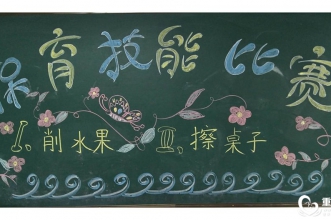 保育技能比赛
I、削水果 III、擦桌子